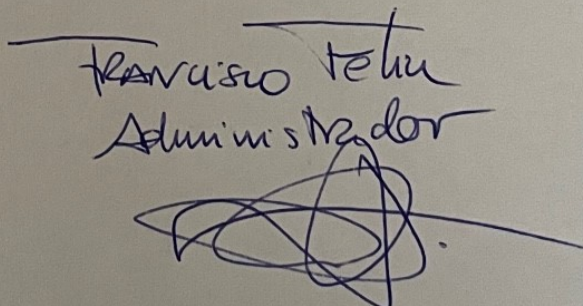 Francisco Feliu
Administrador